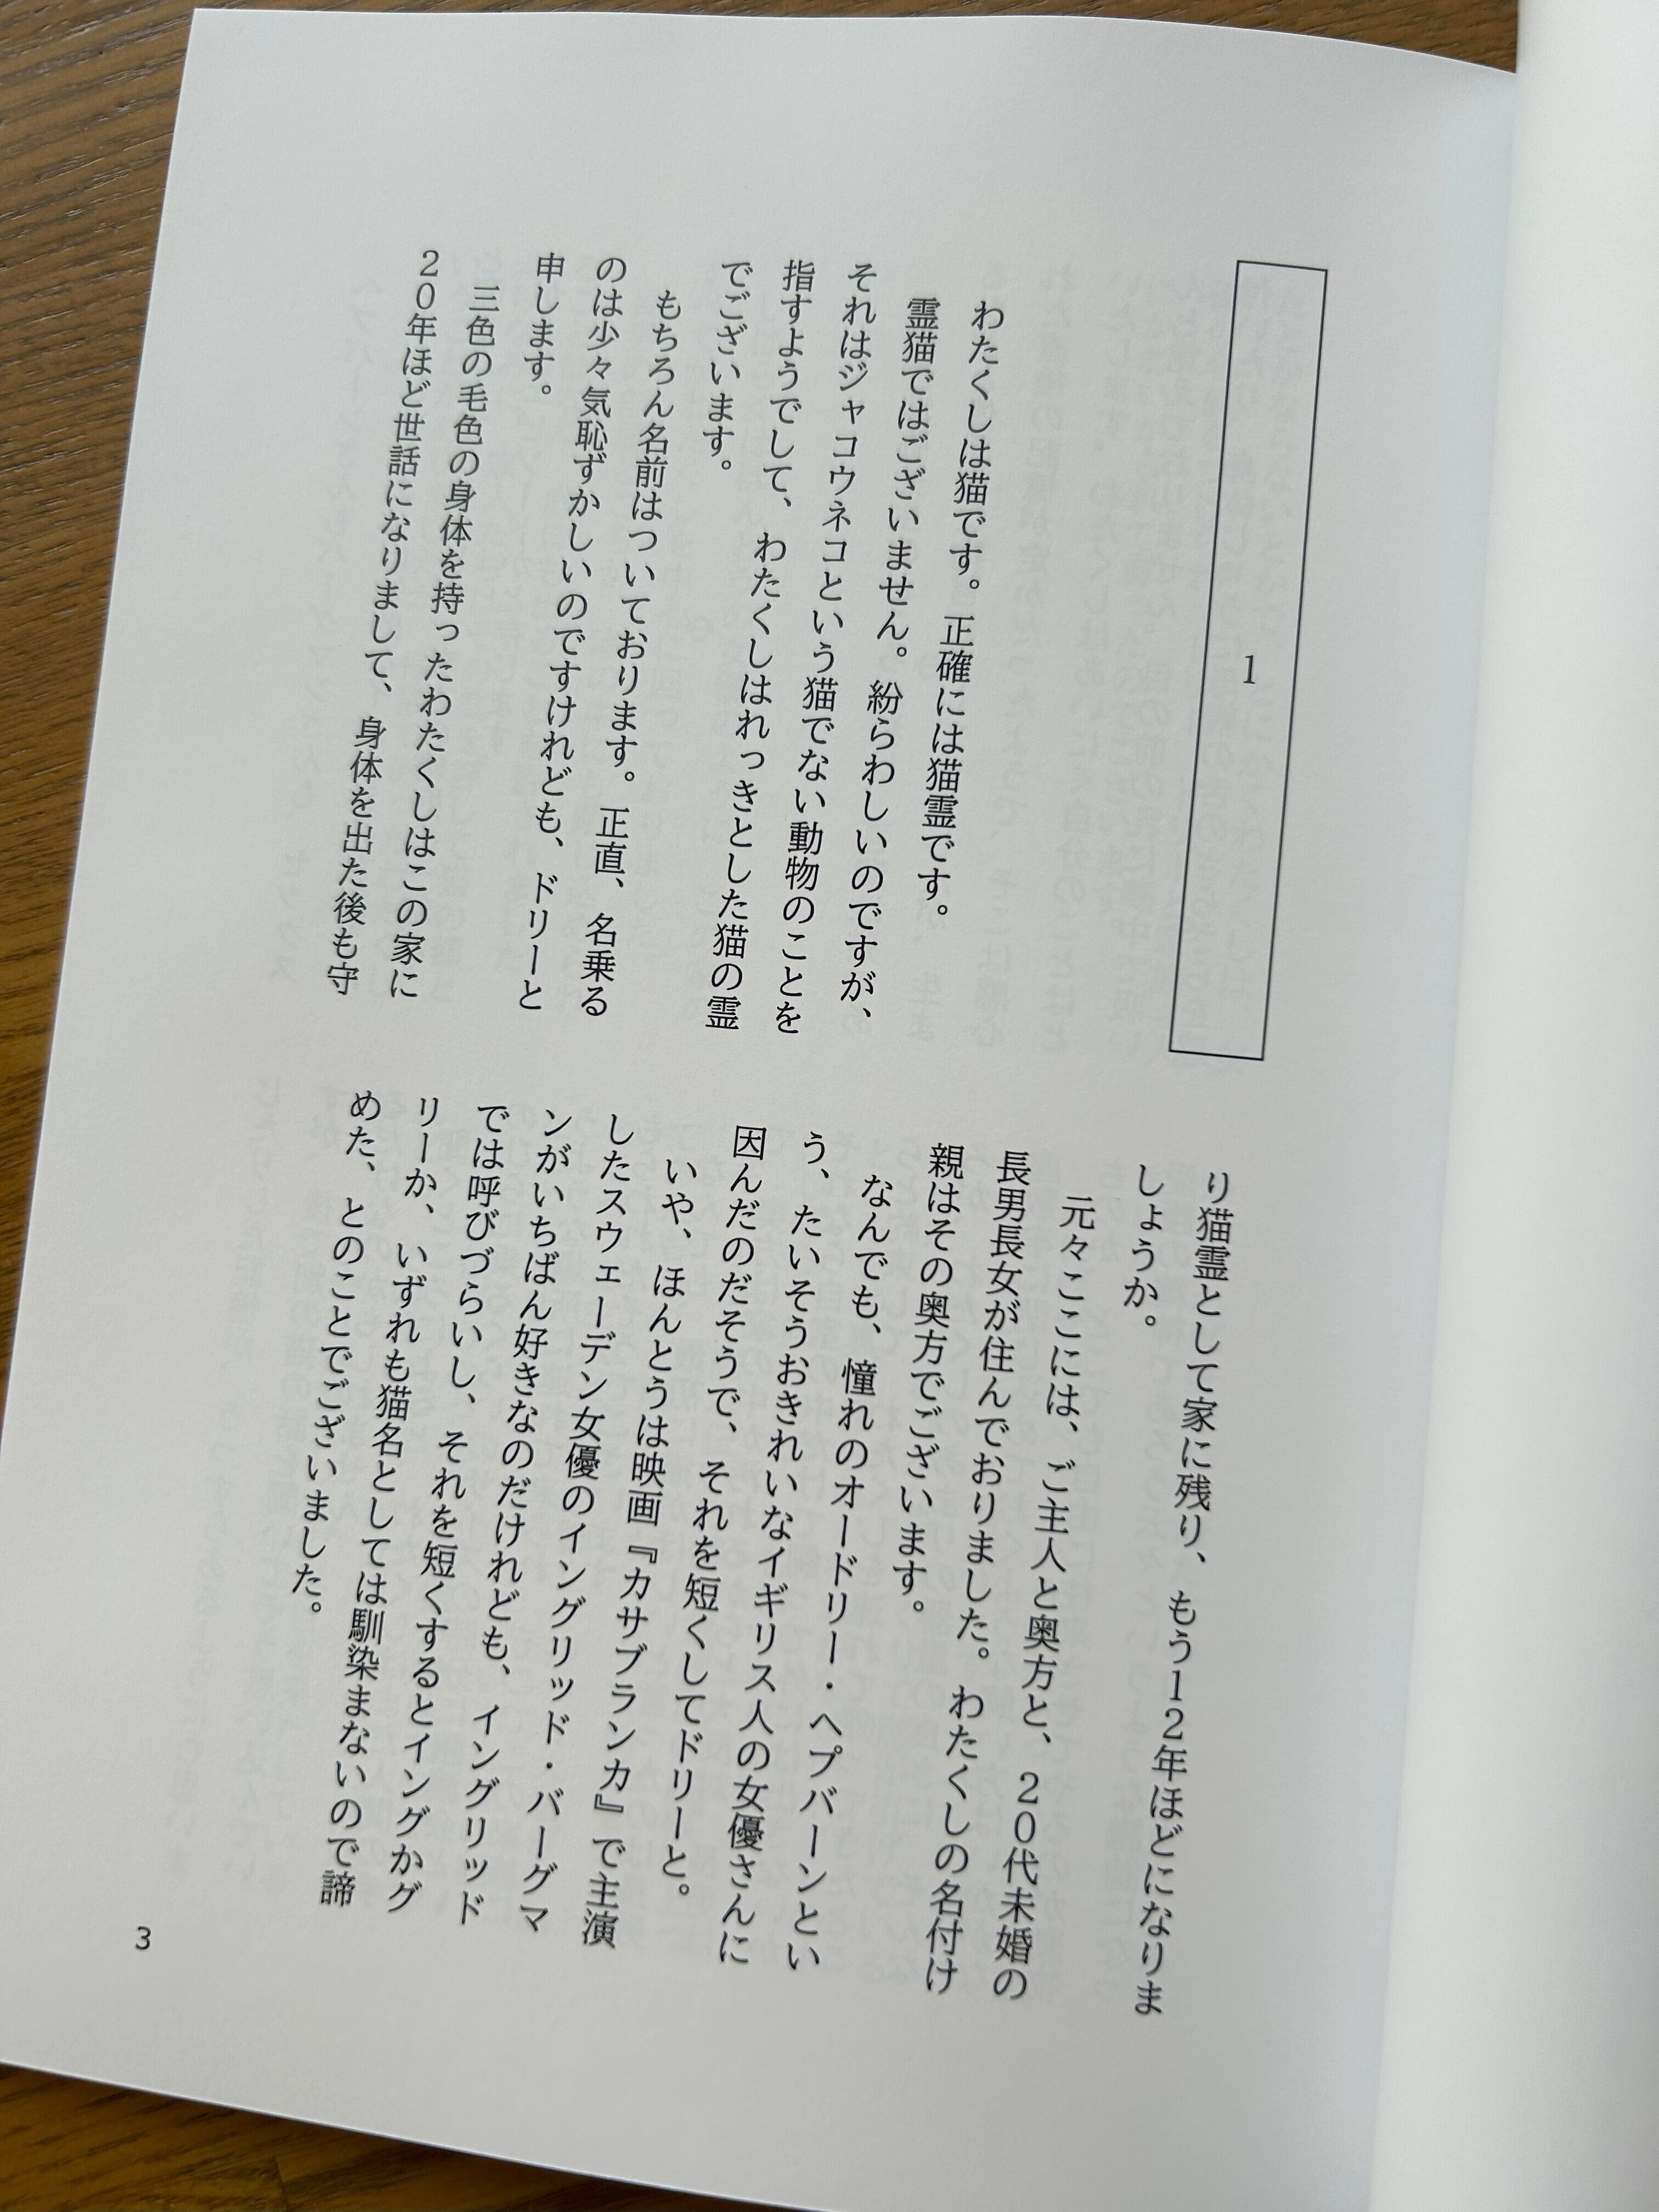 1
わたくしは猫です。正確には猫霊です。
霊猫ではございません。紛らわしいのですが、
それはジャコウネコという猫でない動物のことを
指すようでして、わたくしはれっきとした猫の霊
でございます。
もちろん名前はついております。正直、名乗る
のは少々気恥ずかしいのですけれども、ドリーと
申します。
三色の毛色の身体を持ったわたくしはこの家に
20年ほど世話になりまして、身体を出た後も守
り猫霊として家に残り、もう12年ほどになりま
しょうか。
元々ここには、ご主人と奥方と、20代未婚の
長男長女が住んでおりました。わたくしの名付け
親はその奥方でございます。
なんでも、憧れのオードリー・ヘプバーンとい
う、たいそうおきれいなイギリス人の女優さんに
因んだのだそうで、それを短くしてドリーと。
いや、ほんとうは映画『カサブランカ』で主演
したスウェーデン女優のイングリッド・バーグマ
ンがいちばん好きなのだけれども、イングリッド
では呼びづらいし、それを短くするとイングかグ
リーか、いずれも猫名としては馴染まないので諦
めた、とのことでございました。
3